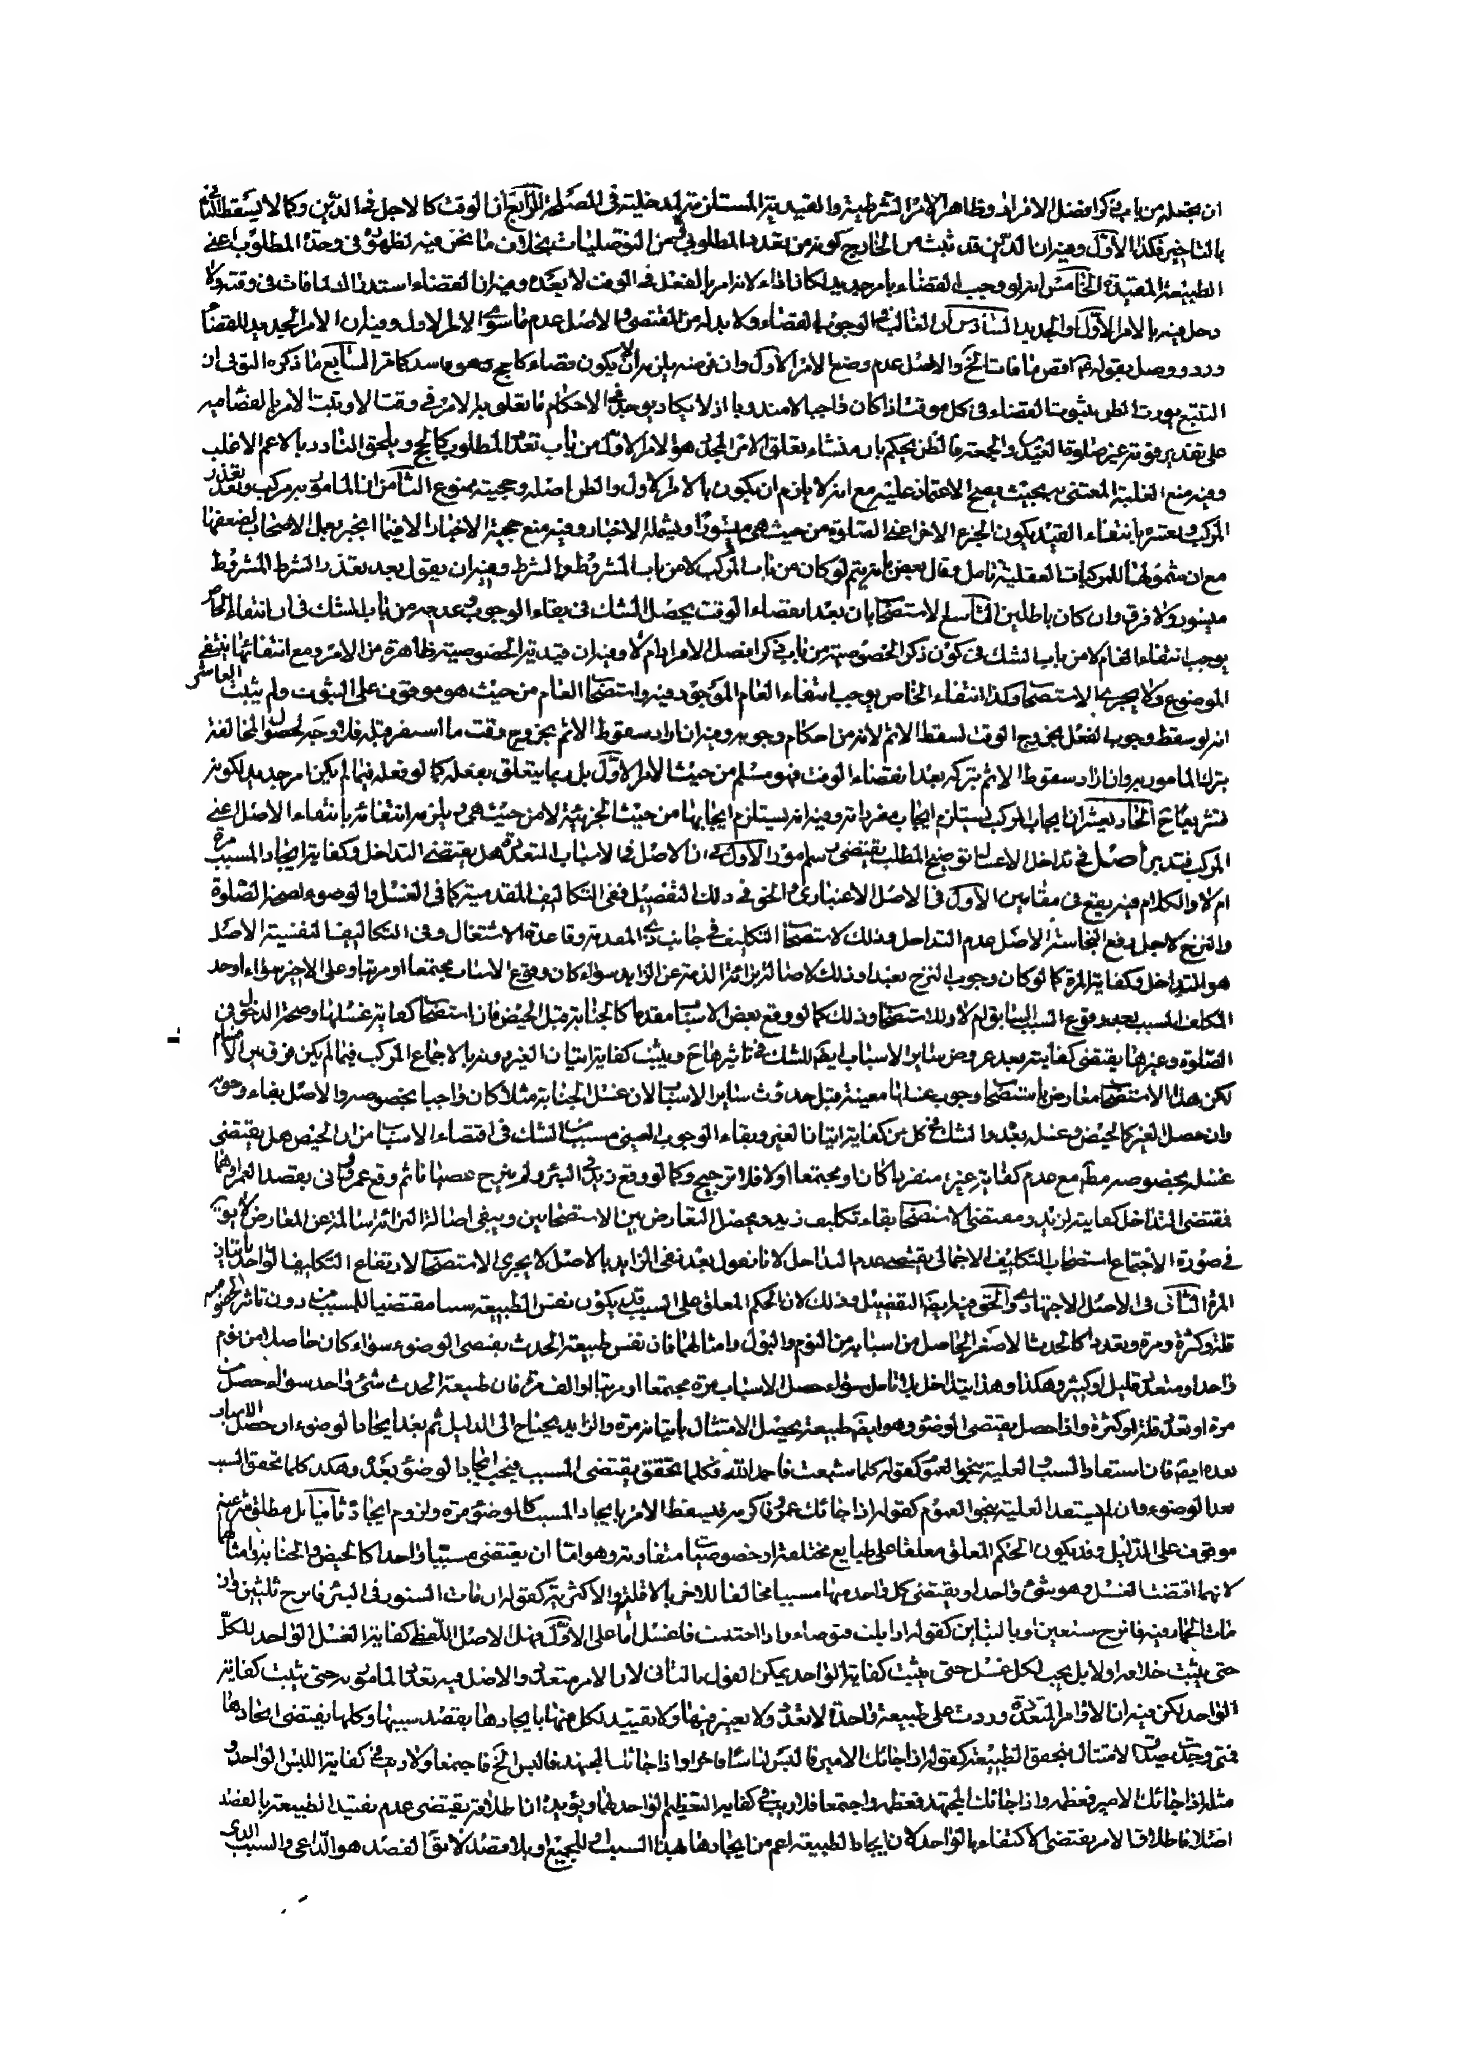 ان يجعله من باب ذكر افضل الافراد وظاهر الامر الشرطية والقيدية المستلزمة لمدخليته في المصلحة الرابع ان الوقت كالاجل في الدين وكما لا يسقط الثاني
بالتاخير فكذا الاول وفيه ان الدين قد ثبت من الخارج كونه من تعدد المطلوب من التوصليات بخلاف ما نحن فيه لظهوره في وحدة المطلوب اعني
الطبيعة المقيدة الخامس انه لو وجب القضاء بامر جديد لكان اداء لانه امر بالفعل في الوقت لا بعده وفيه ان القضاء استدراك لما فات في وقته ولا
دخل فيه بالامر الاول والجديد السادس ان الغالب في الوجوب القضاء ولا بد له من المقتضى والاصل عدم ما سوى الامر الاول وفيه ان الامر الجديد للقضاء
ورد ووصل بقوله اقض ما فات الخ والاصل عدم وضع الامر الاول وان غرضه يلزم ان لا يكون قضاء كالحج وهو فاسد كما مر السابع ما ذكره التوني ان
التتبع يورث الظن بثبوت القضاء في كل موقت اذا كان واجبا لا مندوبا اذ لا يكاد يوجد في الاحكام ما تعلق به الامر في وقت الا وثبت الامر بالقضاء فيه
على تقدير فوته غير صلوة العيدين والجمعة فالظن يحكم بان منشاء تعلق الامر المجدد هو الامر الاول من باب تعدد المطلوب كالحج ويلحق النادر بالاعم الاغلب
وفيه منع الغلبة المعتنى به بحيث يصح الاعتماد عليه مع انه لا يلزم ان يكون بالامر الاول والظن اصله وحجيته ممنوع الثامن ان المامور به مركب وتعذر
المركب وتعسره بانتفاء القيد يكون الجزء الاخر اعني الصلوة من حيث هي ميسورا ويشمله الاخبار وفيه منع حجية الاخبار الا فيما انجبر بعمل الاصحاب لضعفها
مع ان شمولها للمركبات العقلية تامل وقال بعض بانه يتم لو كان من باب المركب لا من باب المشروط والشرط وفيه ان يقول بعد تعذر الشرط المشروط
ميسور ولا فرق وان كان باطلين التاسع الاستصحاب بان بعد انقضاء الوقت يحصل الشك في بقاء الوجوب وعدمه من باب الشك في ان انتفاء الخاص
يوجب انتفاء العام لا من باب الشك في كون ذكر الخصوصية من باب ذكر افضل الافراد ام لا وفيه ان قيدية الخصوصية ظاهرة من الامر ومع انتفائها ينتفي
الموضوع ولا يجري الاستصحاب وكذا انتفاء الخاص يوجب انتفاء العام الموجود فيه واستصحاب العام من حيث هو موقوف على الثبوت ولم يثبت العاشر
انه لو سقط وجوب الفعل بخروج الوقت لسقط الاثم لانه من احكام وجوبه وفيه ان اراد سقوط الاثم بخروج وقت ما استقر قبله فلا وجه لحصول المخالفة
بترك المامور به وان اراد سقوط الاثم بتركه بعد انقضاء الوقت فهو مسلم من حيث الامر الاول بل ربما يتعلق بفعله كما لو فعله فيما لم يكن امر جديد لكونه
تشريعا ح الحادي عشر ان ايجاب المركب يستلزم ايجاب مفرداته وفيه انه يستلزم ايجابها من حيث الجزئية لا من حيث هي ويلزمه انتفائه بانتفاء الاصل اعني
المركب فتدبر اصل في تداخل الاسباب توضيح المطلب يقتضي رسم امور الاول في ان الاصل في الاسباب المتعددة هل يقتضي التداخل وكفاية ايجاد المسبب مرة
ام لا والكلام فيه يقع في مقامين الاول في الاصل الاعتباري والحق في ذلك التفصيل ففي التكاليف المقدمية كما في الغسل والوضوء لصحة الصلوة
والنزح لاجل رفع النجاسة الاصل عدم التداخل وذلك لاستصحاب التكليف في جانب ذي المقدمة وقاعدة الاشتغال وفي التكاليف النفسية الاصل
هو التداخل وكفاية المرة كما لو كان وجوب النزح تعبدا وذلك لاصالة برائة الذمة عن الزايد سواء كان وقوع الاسباب مجتمعا او مرتبا وعلى الاخير سواء اوجد
المكلف المسبب بعد وقوع السبب السابق ام لا وذلك كما لو وقع بعض الاسباب مقدما كالجنابة قبل الحيض فان استصحاب كفاية غسلها وصحة الدخول في
الصلوة وغيرها يقتضي كفايته بعد عروض ساير الاسباب ايضا للشك في تاثيرها ح ويثبت كفاية اتيان الغير ونه بالاجماع المركب فيما لم يكن فرق بين الاقسام
لكن هذا الاستصحاب معارض باستصحاب وجوب غسلها معينة قبل حدوث ساير الاسباب لان غسل الجنابة مثلا كان واجبا بخصوصه والاصل بقاء وجوبه
وان حصل الغير كالحيض وغسل بعده والشك في كل من كفاية اتيان الغير وبقاء الوجوب العيني مسبب الشك في اقتضاء الاسباب من ان الحيض هل يقتضي
غسله بخصوصه مطلقا مع عدم كفاية غيره منفردا كان او مجتمعا اولا فلا ترجيح وكما لو وقع زيد في البئر ولم ينزح عصيانا ثم وقع عمرو
فمقتضى التداخل كفايته لزيد ومقتضى الاستصحاب بقاء تكليف زيد ويحصل التعارض بين الاستصحابين ويبقى اصالة البرائة سالمة عن المعارض
في صورة الاجتماع استصحاب التكليف الاجمالي يقتضي عدم التداخل لانا نقول بعد نفي الزايد بالاصل لا يجري الاستصحاب لارتفاع التكليف الواحد باتيان
المرة الثاني في الاصل الاجتهادي والحق فيه ايضا التفصيل وذلك لان الحكم المعلق على السبب قد يكون نفس الطبيعة سببا مقتضيا للمسبب من دون تاثير الخصوصية
قلة وكثرة ومرة وتعددا كالحدث الاصغر الحاصل من اسبابه من النوم والبول وامثالهما فان نفس طبيعة الحدث يقتضي الوضوء سواء كان حاصلا من نوم
واحد او متعدد قليل او كثير وهكذا وهذا يتداخل بلا تامل سواء حصل الاسباب مرة مجتمعا او مرتبا او الف مرة فان طبيعة الحدث شئ واحد سواء حصل من
مرة او تعدد قلة او كثرة واذا حصل يقتضي الوضوء وهو ايضا طبيعة يحصل الامتثال باتيانه مرة والزايد يحتاج الى الدليل ثم بعد ايجاد الوضوء ان حصل الاسباب
بعده ايضا فان استفاد السبب والعلية بنحو العموم كقوله كلما شبعت فاحمد الله فكلما تحقق يقتضي المسبب فيجب ايجاد الوضوء بعده وهكذا كلما تحقق السبب
بعد الوضوء وان لم يستفد العلية بنحو العموم كقوله اذا جائك عمرو فاكرمه فيسقط الامر بايجاد المسبب كالوضوء مرة ولزوم ايجاده ثانيا بل مطلق شرعيته
موقوف على الدليل وقد يكون الحكم المعلق معلقا على طبايع مختلفة او خصوصيات متفاوتة وهو اما ان يقتضي مسببا واحدا كالحيض والجنابة وامثالها
لانهما اقتضت الغسل وهو شئ واحد او يقتضي كل واحد منها مسببا مخالفا للاخر بالاقلية والاكثرية كقوله ان مات السنور في البئر فانزح ثلثين وان
مات الحمار فيه فانزح سبعين او بالتباين كقوله اذا بلت فتوضاء واذا احتلمت فاغسل اما على الاول فهل الاصل اللفظي كفاية الغسل الواحد للكل
حتى يثبت خلافه او لا بل يجب لكل غسل حتى يثبت كفاية الواحد يمكن القول بالثاني لان الامر متعدد والاصل فيه تعدد المامور به حتى يثبت كفاية
الواحد لكن فيه ان الاوامر المتعددة وردت على طبيعة واحدة لا تعدد ولا تعيين فيها ولا تقييد لكل منها بايجادها بقصد سببها وكلها يقتضي ايجادها
فمتى وجدت صدق الامتثال بتحقق الطبيعة كقوله اذا جائك الامير فالبس لباسا فاخرا واذا جائك المجتهد فالبس الخ فاجتمعا ولا ريب في كفاية اللبس الواحد
مثله اذا جائك الامير فعظمه واذا جائك المجتهد فعظمه واجتمعا فلا ريب في كفاية التعظيم الواحد لهما ويؤيده ان اطلاقه يقتضي عدم تقييد الطبيعة بالقصد
اصلا فاطلاق الامر يقتضي الاكتفاء بالواحد لان ايجاد الطبيعة اعم من ايجادها بهذا السبب او للجميع او بلا قصد لا يقال القصد هو الداعي والسبب الذي